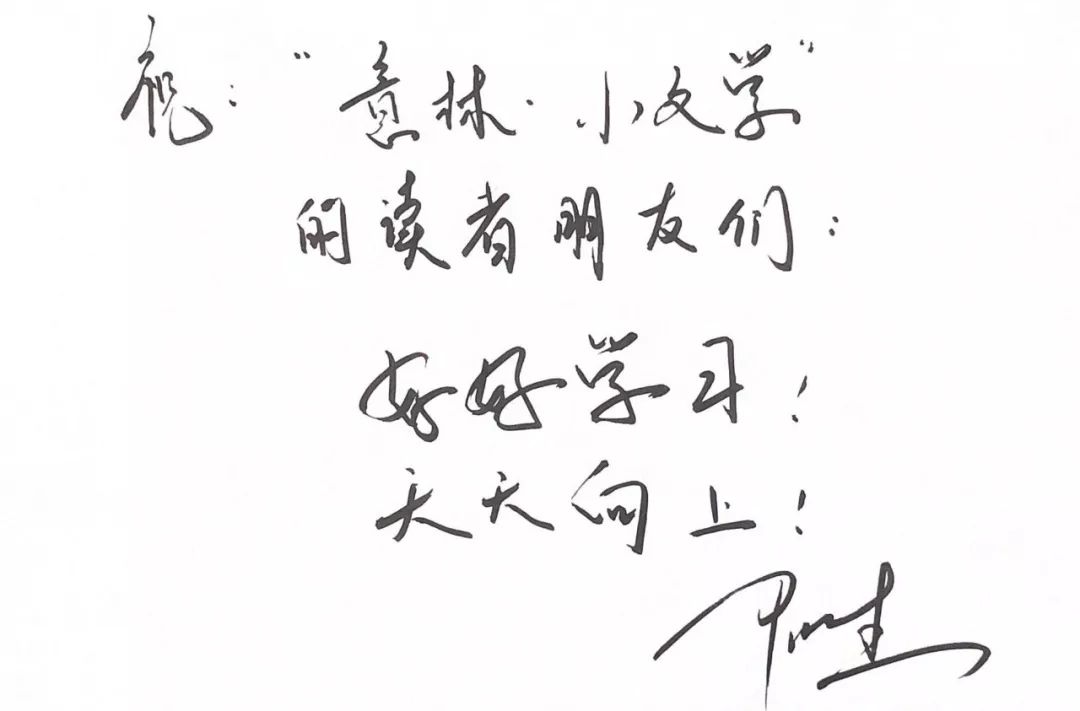 祝："意林·小文学"
的读者朋友们：
好好学习！
天天向上！